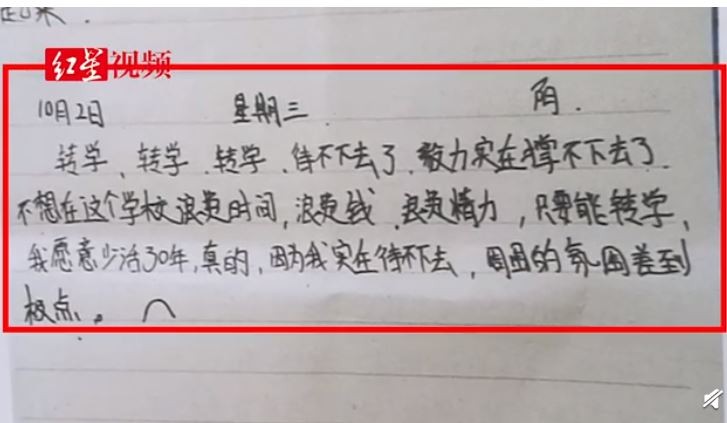 红星视频
10月2日 星期三 阴.
转学、转学.转学.待不下去了.毅力实在撑不下去了.
不想在这个学校浪费时间,浪费钱.浪费精力,只要能转学,
我愿意少活30年,真的,因为我实在待不下去,周围的氛围差到
极点。